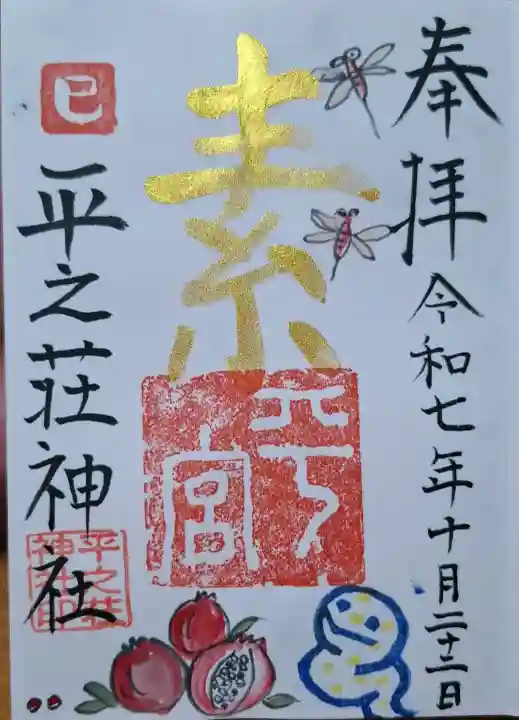 奉拝 令和七年十月二十二日
素
平宮
巳
平之荘神社
平之荘神社印